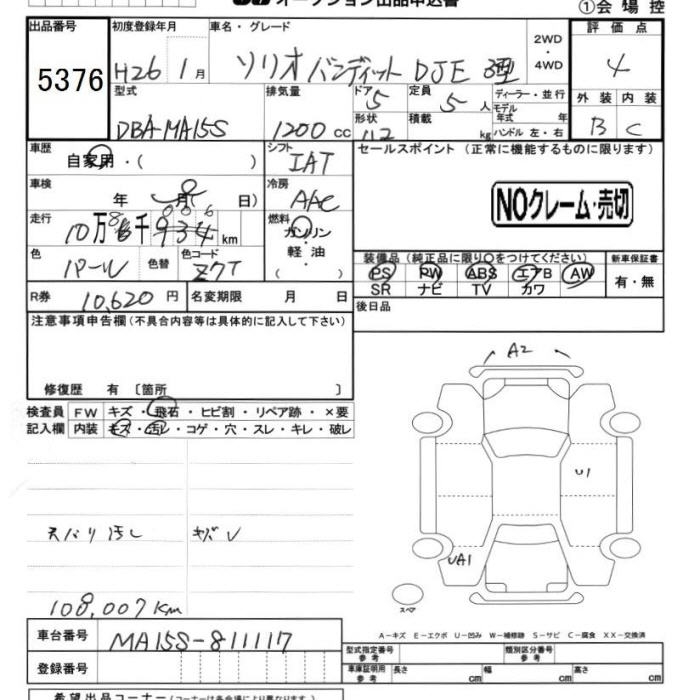 オークション出品申込書
①会場控
出品番号 初度登録年月 車名・グレード 2WD 評価点
5376 H26 1月 ソリオ バンディット DJE 3型 ・4WD 4
型式 排気量 ドア 定員 ディーラー・並行 外装 内装
DBA-MA15S 1200 cc 5 5人 モデル年式 年 B C
形状 積載 kg ハンドル 左・右
車歴 シフト セールスポイント (正常に機能するものに限ります)
自家用・( ) IAT
車検 冷房
年 月( 日) AAC NOクレーム・売切
走行 燃料
10万 千 km ガソリン・
軽油・
色 色替 色コード 装備品 (純正品に限り○をつけてください) 新車保証書
パール Z7T PS PW ABS エアB AW 有・無
SR ナビ TV カワ
R券 10,620円 名変期限 月 日 後日品
注意事項申告欄(不具合内容等は具体的に記入して下さい)
A2
修復歴 有 〔箇所 〕
検査員 FW キズ・飛石・ヒビ割・リペア跡・×要
記入欄 内装 キズ・汚レ・コゲ・穴・スレ・キレ・破レ
U1
天バリ汚レ キズV
UA1
108,007km スペア
車台番号 MA15S-811117 A-キズ E-エクボ U-凹み W-補修跡 S-サビ C-腐食 XX-交換済
型式指定番号 参考 類別区分番号 参考
登録番号 車庫証明用 参考 長さ cm 幅 cm 高さ cm
希望出品コーナー(コーナーは各会場により異なります)